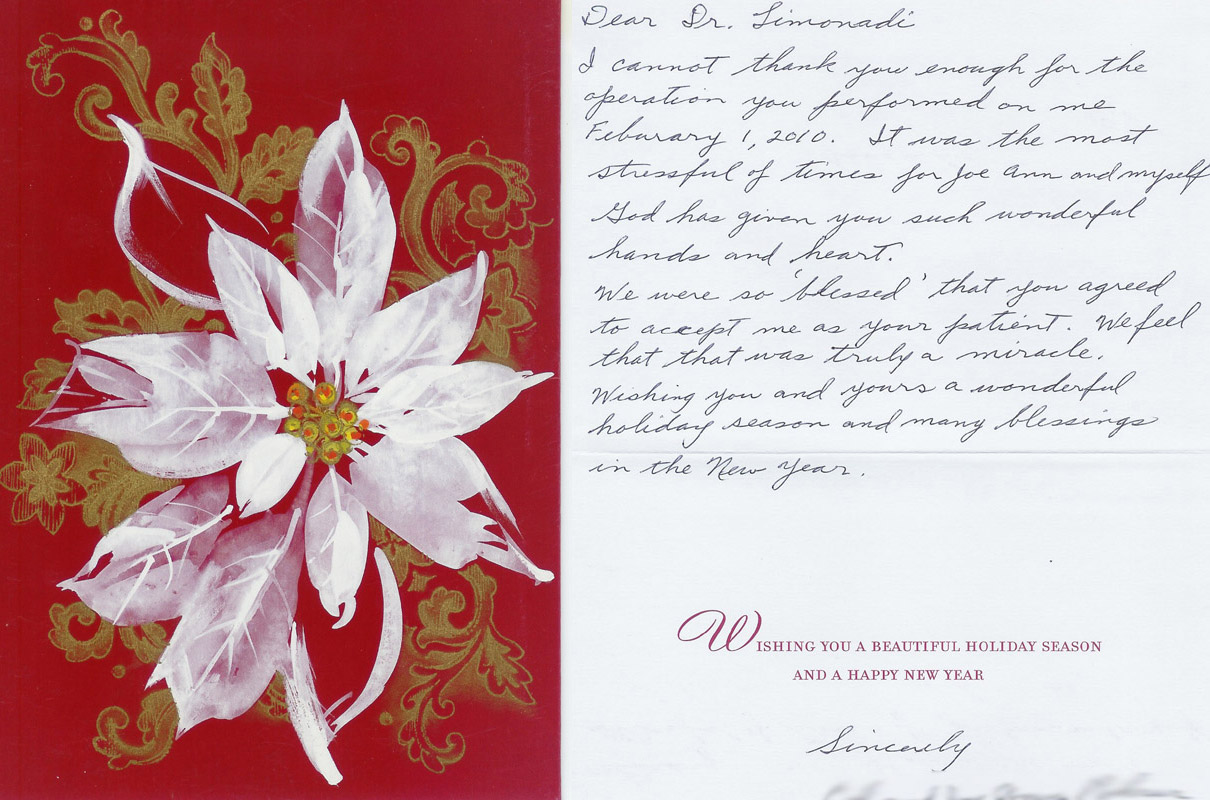 Dear Dr. Simonadi
I cannot thank you enough for the
operation you performed on me
Feburary 1, 2010. It was the most
stressful of times for Joe Ann and myself
God has given you such wonderful
hands and heart.
We were so 'blessed' that you agreed
to accept me as your patient. We feel
that that was truly a miracle.
Wishing you and yours a wonderful
holiday season and many blessings
in the New Year.
WISHING YOU A BEAUTIFUL HOLIDAY SEASON
AND A HAPPY NEW YEAR
Sincerely